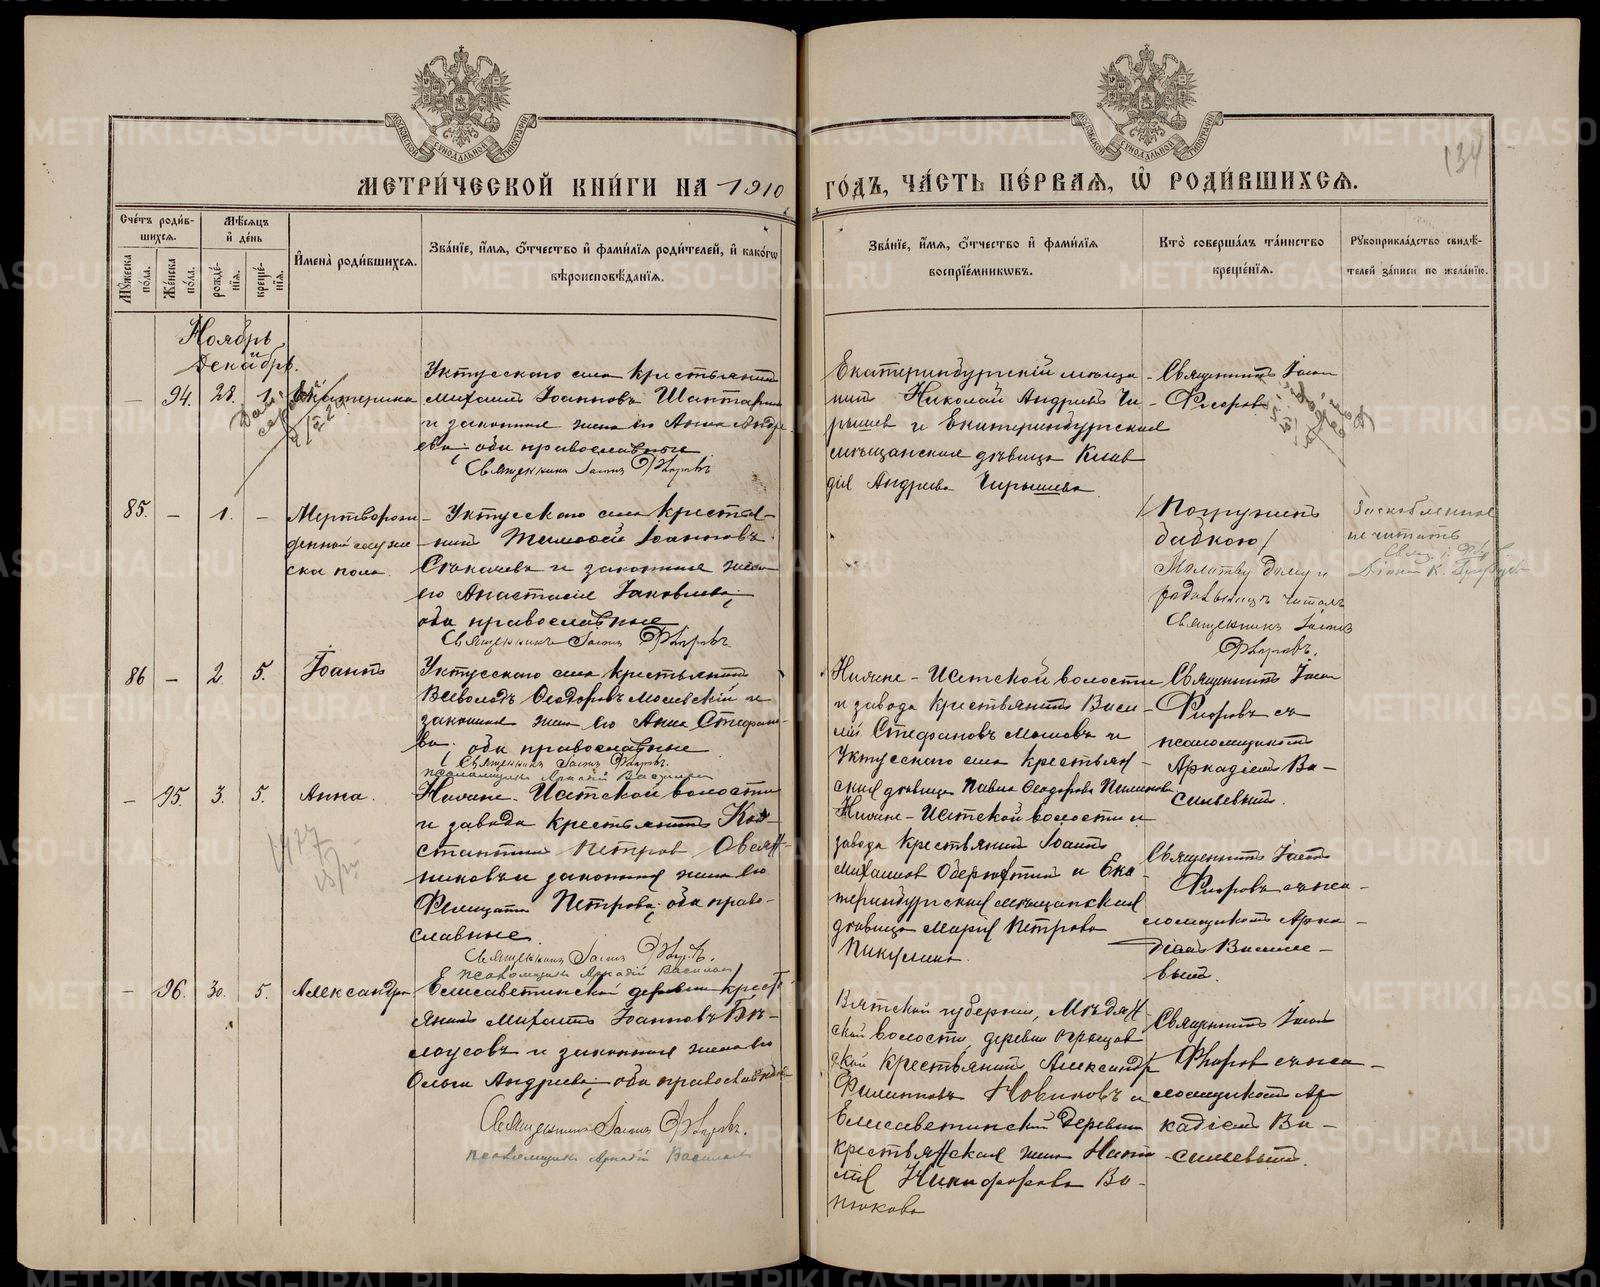 МЕТРИ́ЧЕСКОЙ КНИ́ГИ НА 1910
ГО́ДЪ, ЧА́СТЬ ПЕ́РВАЯ, Ѿ РОДИ́ВШИХСЯ.
134
Сче́тъ роди́в-
шихся.
Мѣ́сяцъ
и҆ де́нь
И҆мена̀ роди́вшихся.
Зва́нїе, и҆́мя, ѻ҆́тчество и҆ фами́лїя роди́телей, и҆ како́гѡ
вѣроисповѣ́данїя.
Мꙋ́жеска по́ла.
Же́нска по́ла.
рожде́нїя.
креще́нїя.
Зва́нїе, и҆́мя, ѻ҆́тчество и҆ фами́лїя
воспрїе́мникѡвъ.
Кто̀ соверша́лъ та́инство
креще́нїя.
Рꙋкоприкла́дство свидѣ́-
телей за́писи по жела́нїю.
Ноябрь
и
Декабрь.
— 94. 28. 1. Екатерина
Уктусскаго села крестьянинъ
Михаилъ Іоанновъ
и законная жена его Анна Андре
ева, оба православные
Священникъ Іоаннъ Флоровъ
Екатеринбургскій мѣща-
нинъ Николай Андреевъ Чи-
рышев и Екатеринбургская
мѣщанская дѣвица Клав
дія Андреева Чирышева.
Священникъ Іоаннъ
Флоровъ
85. — 1. —
Мертворож
денной муже
ска пола.
Уктусскаго села крестья-
нинъ Тимофей Іоанновъ
и законная жена
его Анастасія Іаковлева,
оба православные
Священникъ Іоаннъ Флоровъ
/Погруженъ
бабкою/
Молитву дому и
родильницѣ читалъ
Священникъ Іоаннъ
Флоровъ.
не читать
86 — 2. 5. Іоаннъ
Уктусскаго села крестьянинъ
Всеволодъ Ѳеодоровъ и
законная жена его Анна Стефано-
ва, оба православные
Священникъ Іоаннъ Флоровъ.
псаломщикъ Аркадій Васильевъ
Нижне-Исетской волости
и завода крестьянинъ Васи-
лій Стефановъ и
Уктусскаго села крестьян-
ская дѣвица Павла Ѳеодорова
Священникъ Іоаннъ
Флоровъ съ
псаломщикомъ
Аркадіемъ Ва-
сильевымъ.
— 95. 3. 5. Анна.
1927
Нижне-Исетской волости
и завода крестьянинъ Кон-
стантинъ Петров Овсян-
никовъ и законная жена его
Фелицата Петрова, оба право-
славные.
Священникъ Іоаннъ Флоровъ.
Псаломщикъ Аркадій Васильевъ
Нижне-Исетской волости и
завода крестьянинъ Іоаннъ
Михаиловъ и Ека
теринбургская мѣщанская
дѣвица Марія Петрова
Пикулина.
Священникъ Іоаннъ
Флоровъ съ пса-
ломщикомъ Арка-
діемъ Василье-
вымъ.
— 96. 30. 5. Александра
Елисаветинской деревни крест
янинъ Михаилъ Іоанновъ Бѣ-
лоусовъ и законная жена его
Ольга Андреева, оба православные
Священникъ Іоаннъ Флоровъ.
псаломщикъ Аркадій Васильевъ
Вятской губерніи,
ской волости, деревни
крестьянинъ Александръ
Филипповъ Новиковъ и
Елисаветинской деревни
крестьянская жена Ната
лія Никифорова Ва-
нюкова
Священникъ Іоаннъ
Флоровъ съ пса-
ломщикомъ Ар
кадіемъ Ва-
сильевымъ.
METRIKI.GASO-URAL.RU